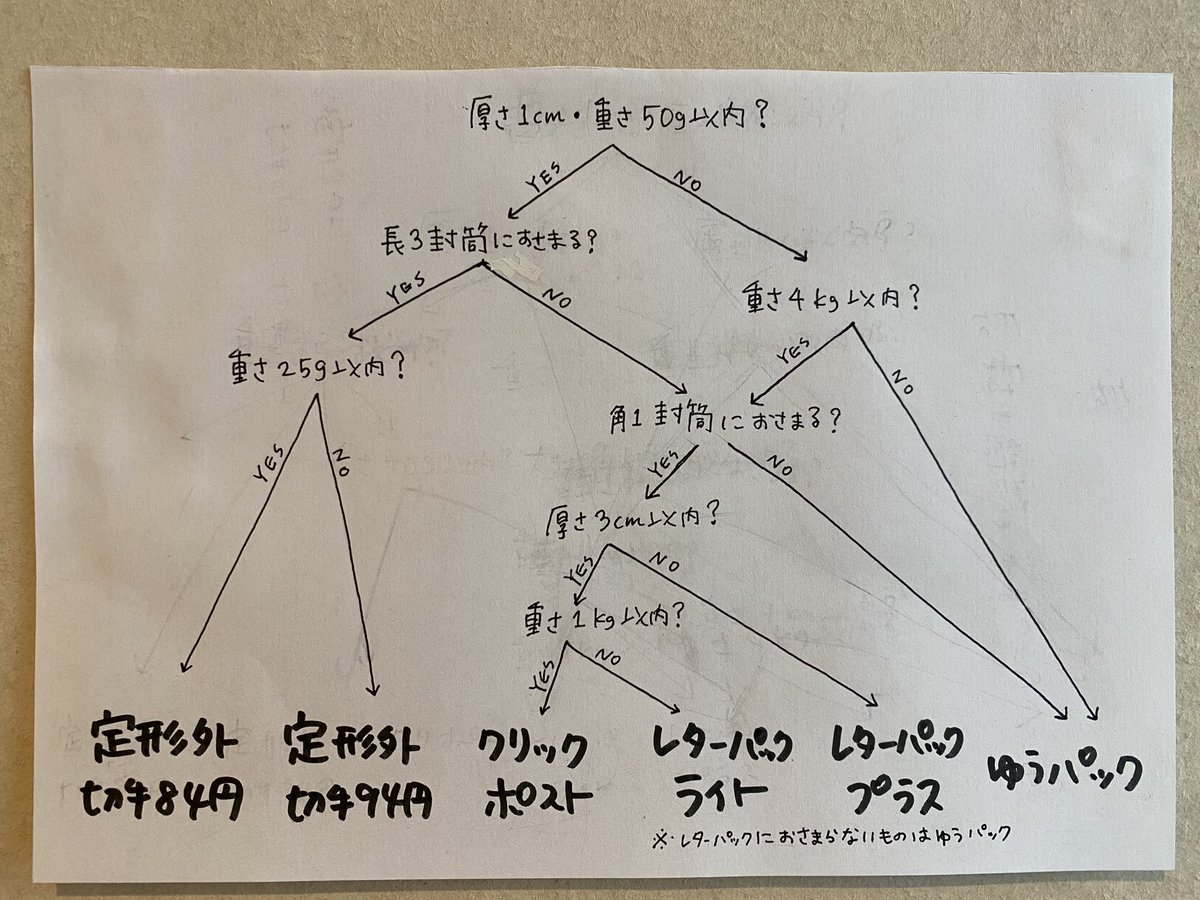 厚さ1cm・重さ50g以内?
YES
NO
長3封筒におさまる?
YES
NO
重さ4kg以内?
YES
NO
重さ25g以内?
YES
NO
角1封筒におさまる?
YES
NO
厚さ3cm以内?
YES
NO
重さ1kg以内?
YES
NO
定形外
切手84円
定形外
切手94円
クリック
ポスト
レターパック
ライト
レターパック
プラス
ゆうパック
※レターパックにおさまらないものはゆうパック